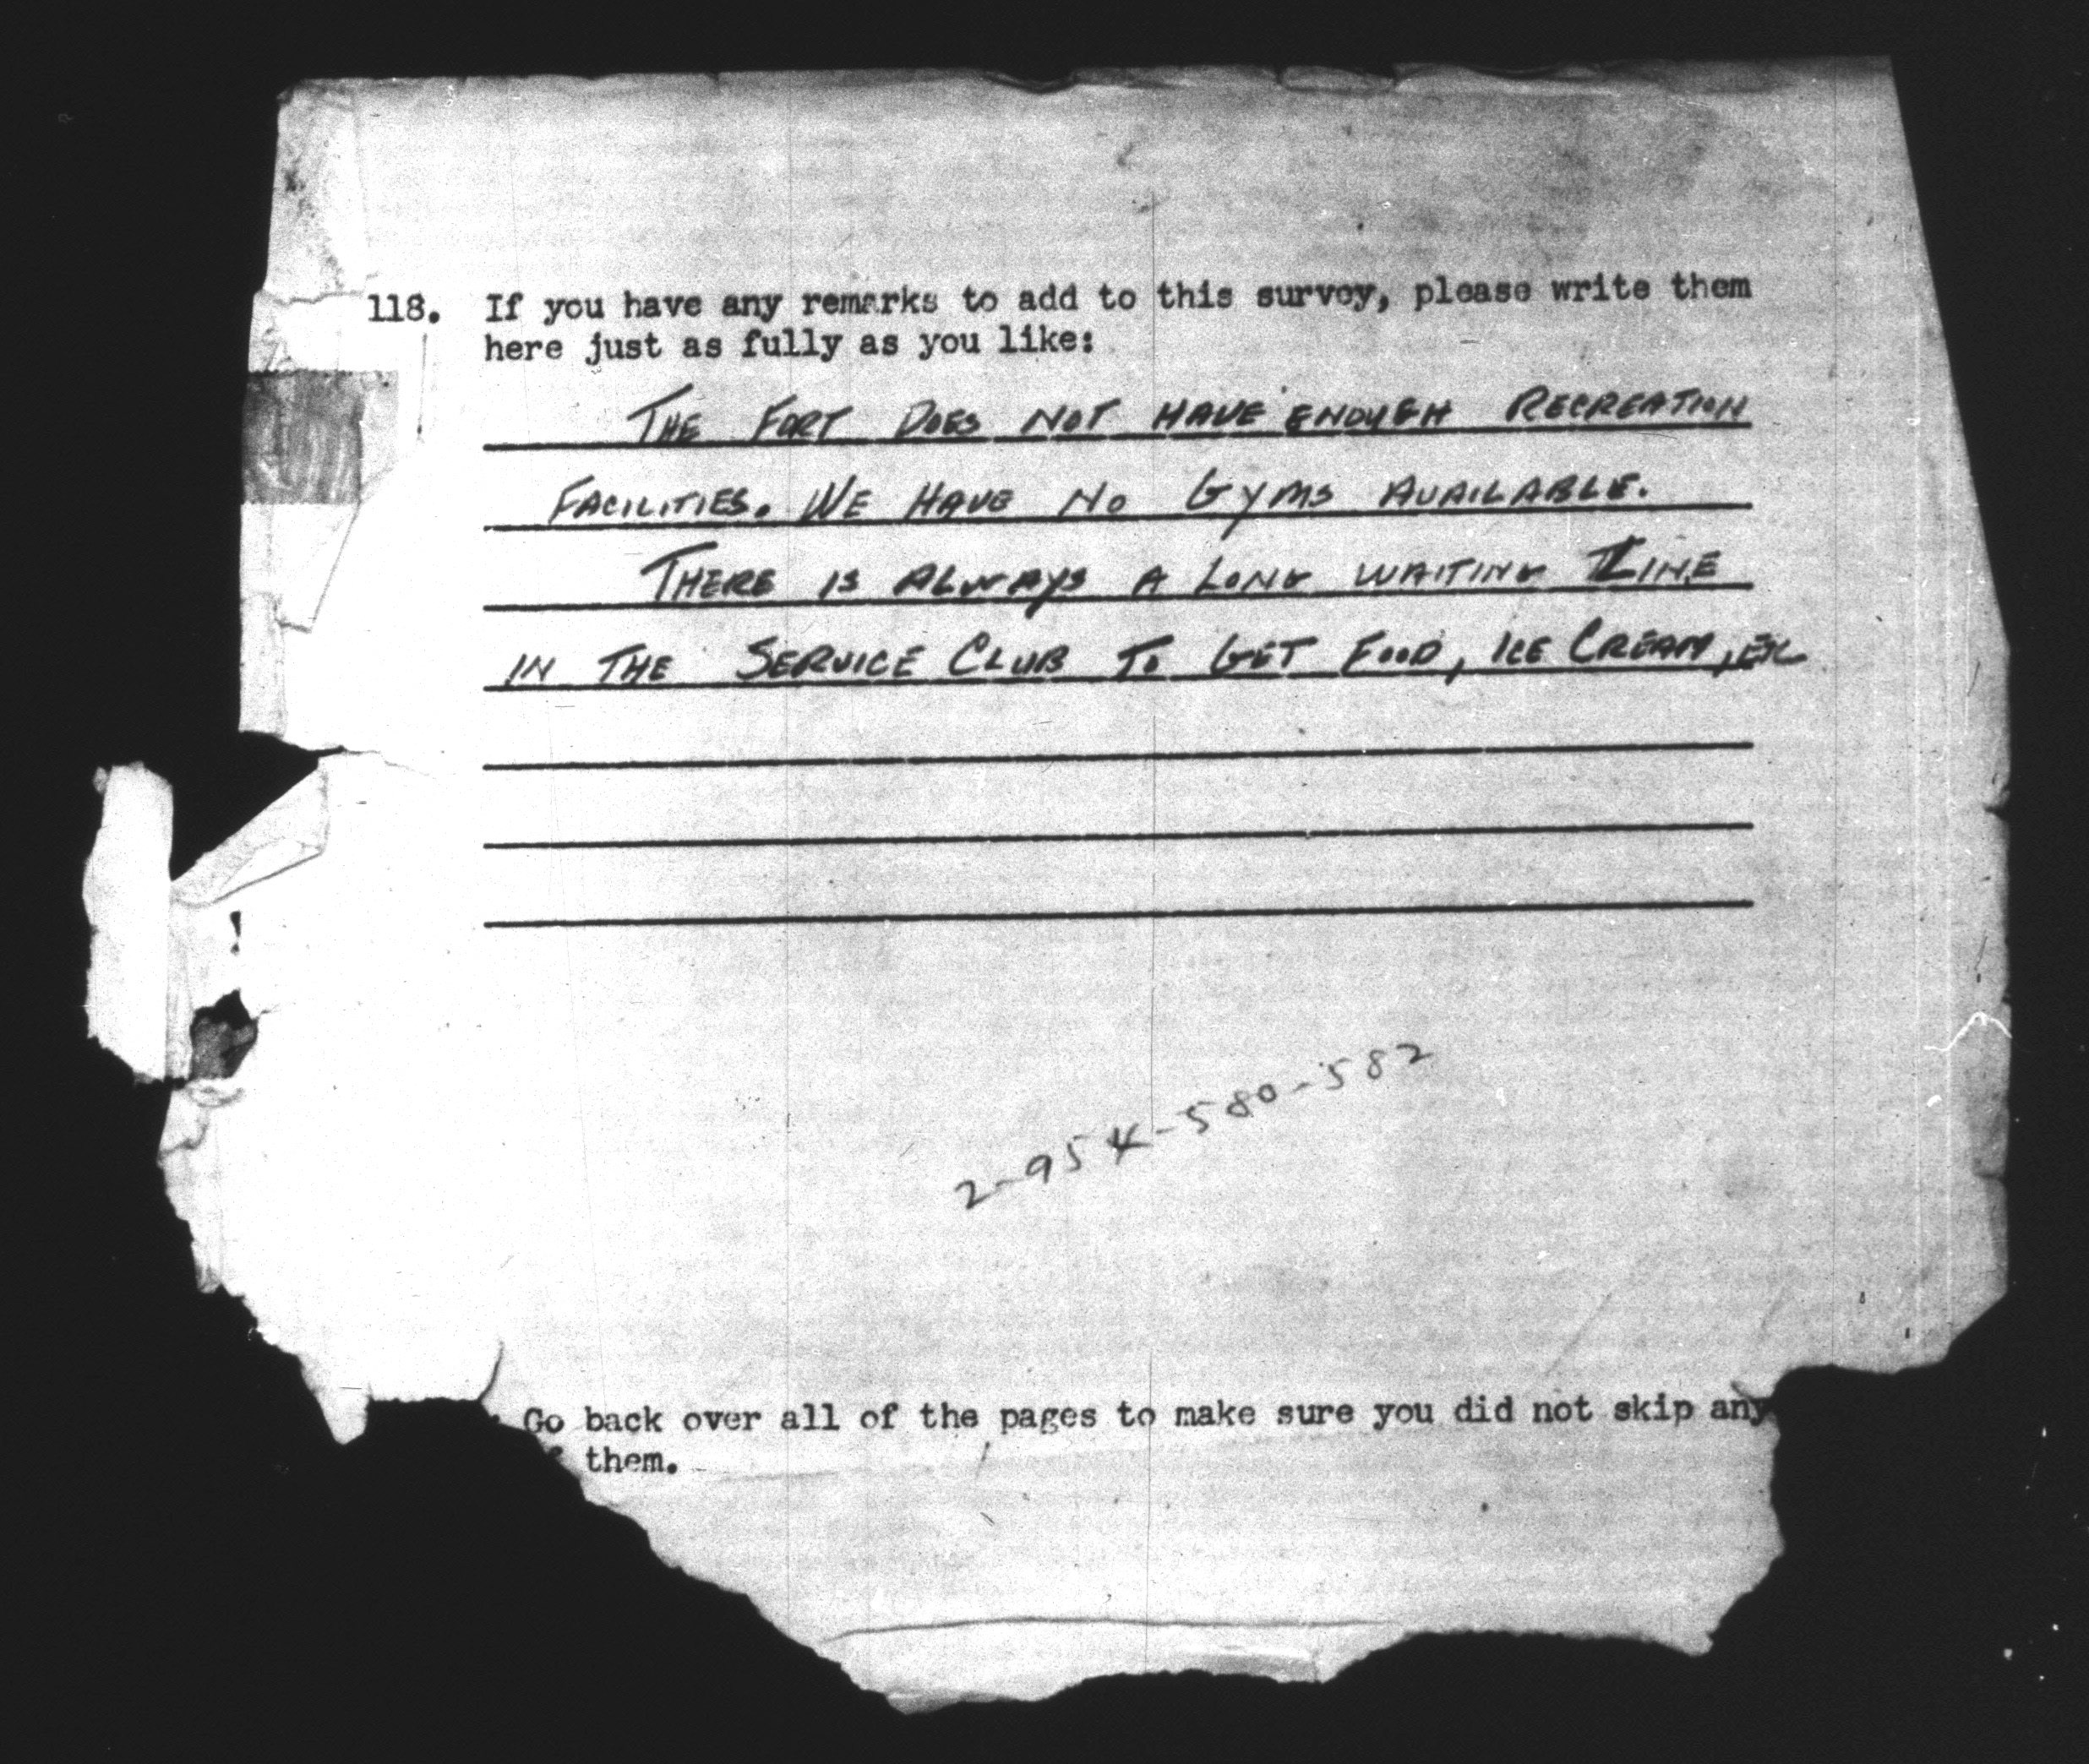 118. If you have any remarks to add to this survey, please write them
here just as fully as you like:
THE FORT DOES NOT HAVE ENOUGH RECREATION
FACILITIES. WE HAVE NO GYMS AVAILABLE.
THERE IS ALWAYS A LONG WAITING LINE
IN THE SERVICE CLUB TO GET FOOD, ICE CREAM, ETC
2-954-580-582
Go back over all of the pages to make sure you did not skip any
them.